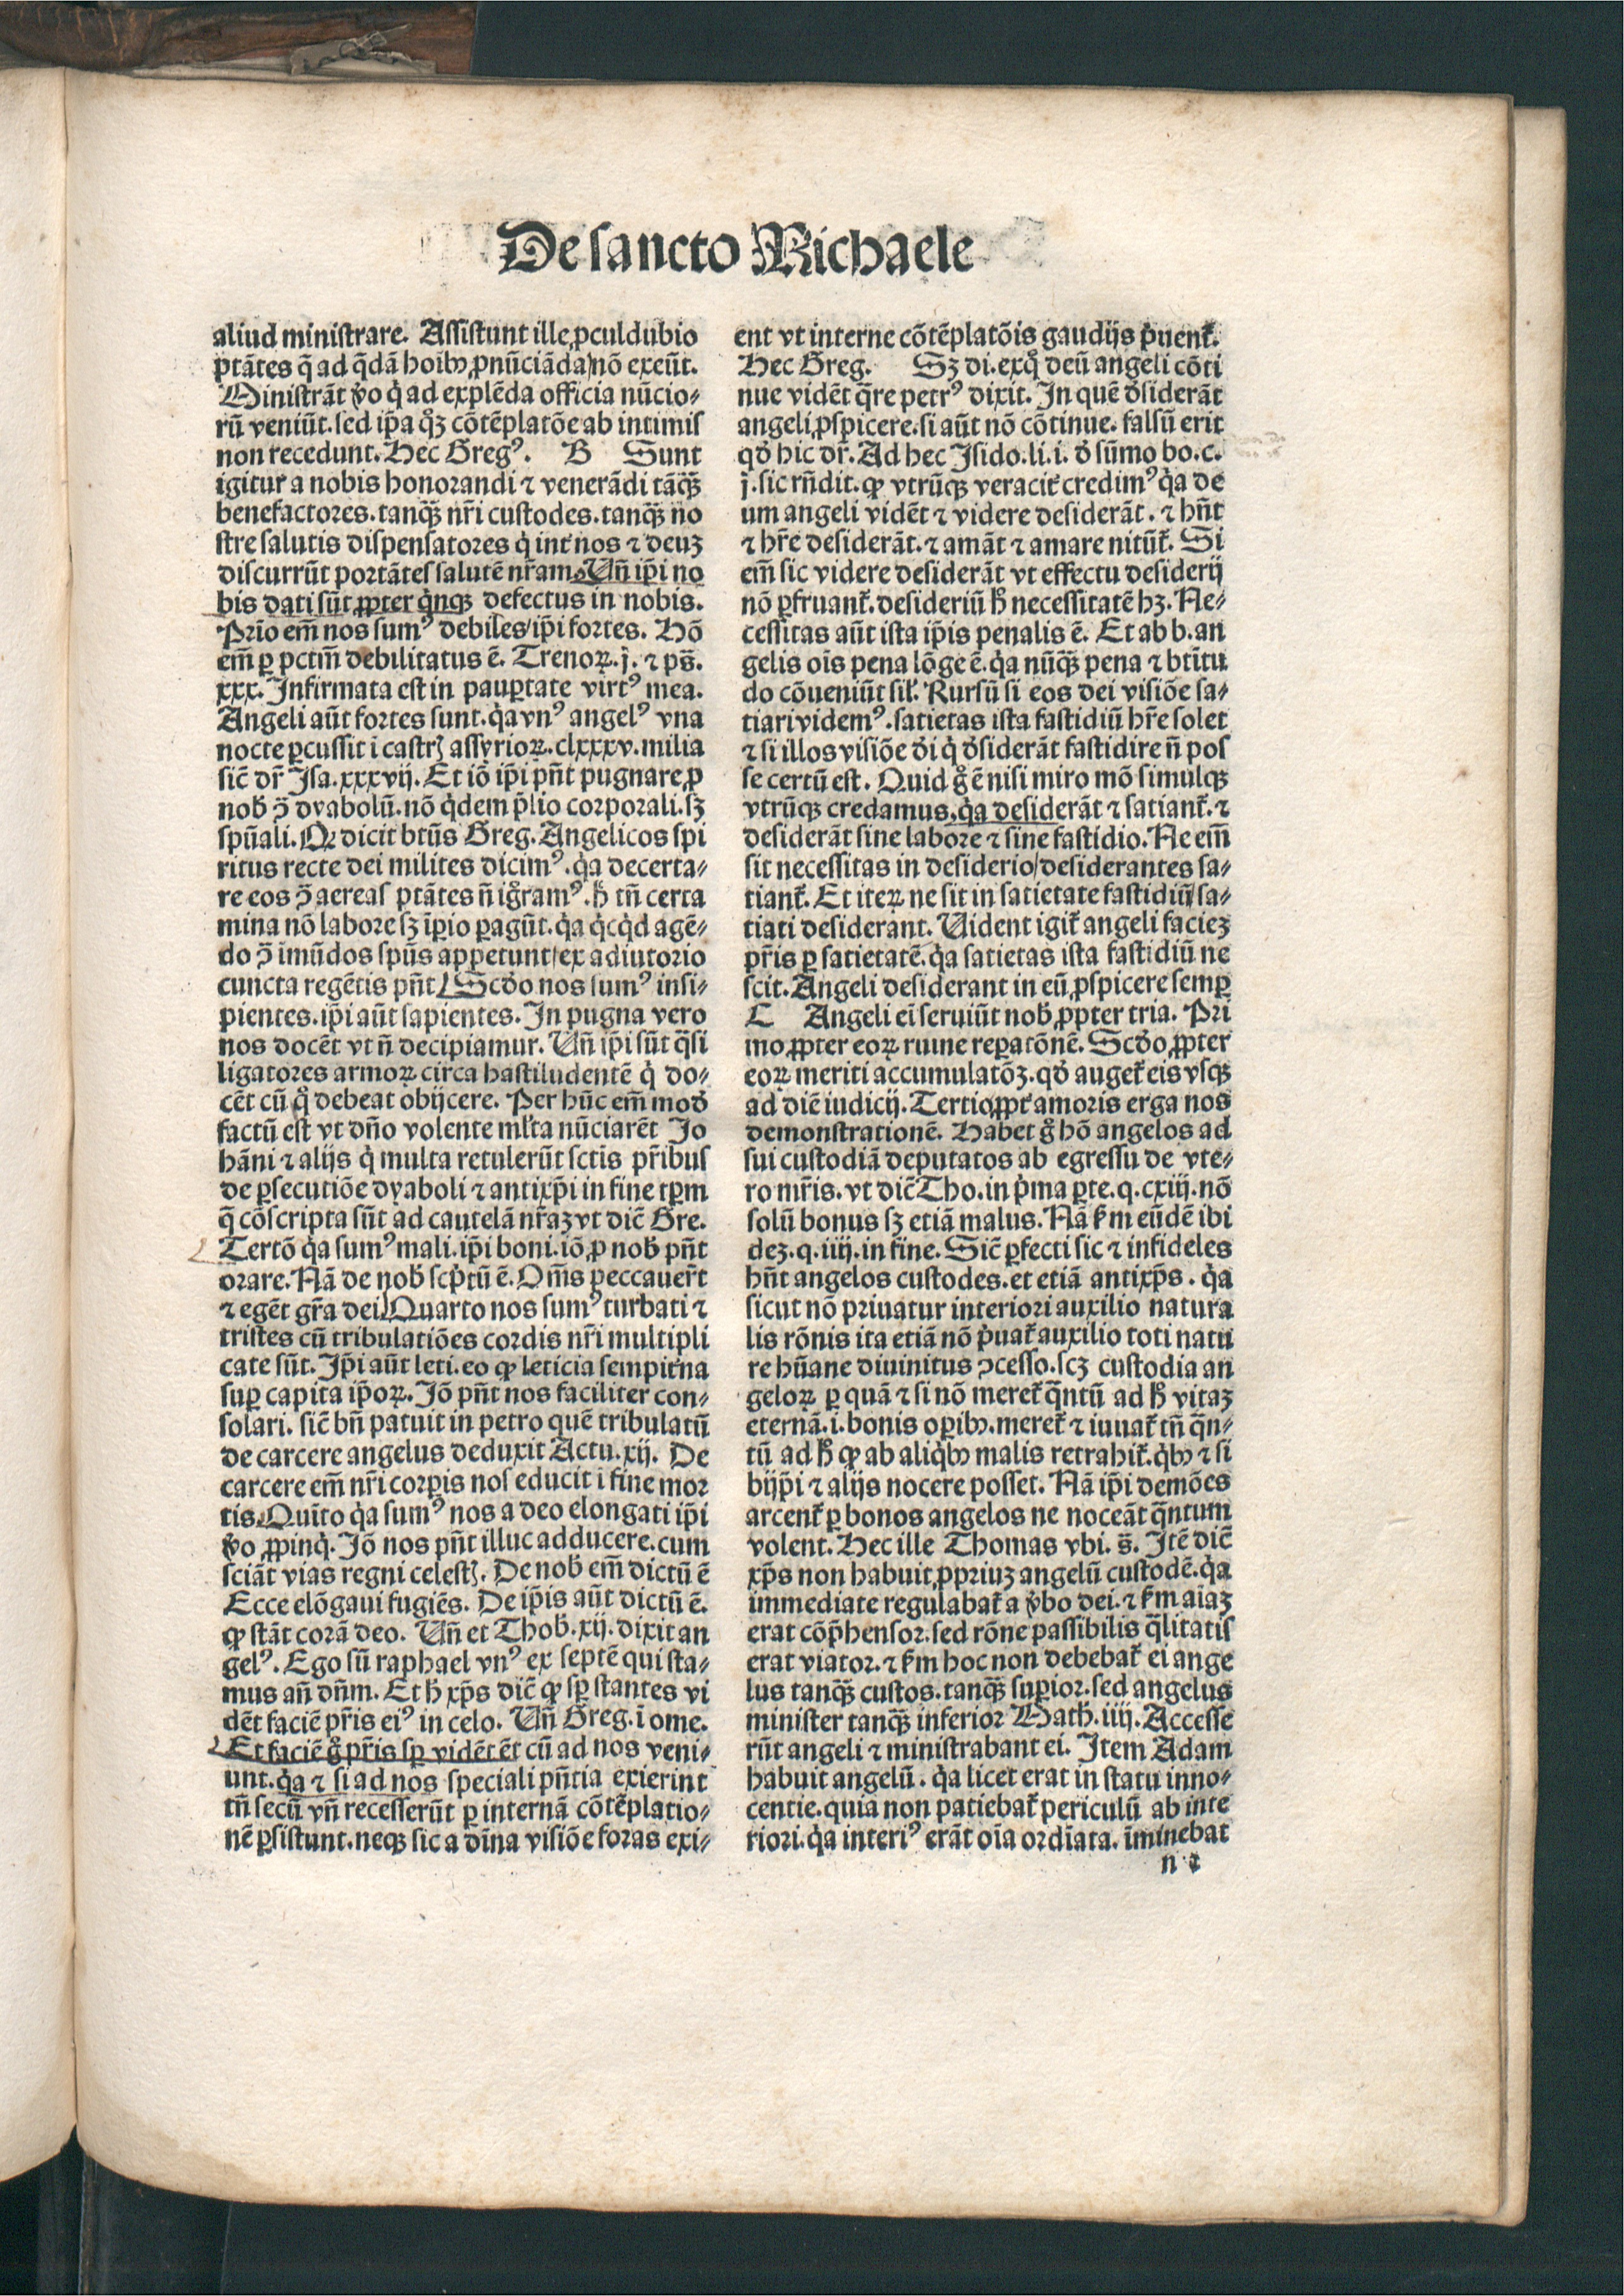 De sancto Michaele
aliud ministrare. Assistunt ille ꝓculdubio
ptātes q̄ ad q̄dā hoībꝰ ꝓnūciāda nō exeūt.
Ministrāt v̓o q̇ ad explēda officia nūcio⸗
rū veniūt. sed ip̄a qͦꝫ cōtēplatōe ab intimis
non recedunt. Hec Gregꝰ. B Sunt
igitur a nobis honorandi ⁊ venerādi tāqꝫ̄
benefactores. tanqꝫ̄ nr̄i custodes. tanqꝫ̄ no
stre salutis dispensatores q̇ int̓ nos ⁊ deuꝫ
discurrūt portātes salutē nr̄am. Vn̄ ip̄i no
bis dati sūt ꝓpter q̇nqꝫ defectus in nobis.
Prīo em̄ nos sumꝰ debiles/ ip̄i fortes. Hō
em̄ ꝑ pctm̄ debilitatus ē. Trenoꝝ. j. ⁊ ps̄.
xxx. Infirmata est in pauꝑtate virtꝰ mea.
Angeli aūt fortes sunt. q̇a vnꝰ angelꝰ vna
nocte ꝑcussit i castrꝭ assyrioꝝ. clxxxv. milia
sic̄ dr̄ Isa. xxxvij. Et iō ip̄i pn̄t pugnare ꝓ
nob̓ ꝯ̄ dyabolū. nō q̇dem p̄lio corporali. sꝫ
spūali. Qꝛ dicit btūs Greg. Angelicos spi
ritus recte dei milites dicimꝰ. q̇a decerta⸗
re eos ꝯ̄ aereas ptātes n̄ igͦramꝰ. h̓ tn̄ certa
mina nō labore sꝫ īꝑio ꝑagūt. q̇a q̇cq̇d agē⸗
do ꝯ̄ imūdos spūs appetunt/ ex adiutorio
cuncta regētis pn̄t Scd̓o nos sumꝰ insi⸗
pientes. ip̄i aūt sapientes. In pugna vero
nos docēt vt n̄ decipiamur. Vn̄ ip̄i sūt q̄si
ligatores armoꝝ circa hastiludentē q̇ do⸗
cēt cū qͦ debeat obijcere. Per hūc em̄ mod̓
factū est vt dn̄o volente ml̓ta nūciarēt Jo
hāni ⁊ alijs q̇ multa retulerūt sctis pr̄ibus
de ꝑsecutiōe dyaboli ⁊ antixp̄i in fine tꝑm
q̄ cōscripta sūt ad cautelā nr̄aꝫ vt dic̄ Gre.
Tertō q̇a sumꝰ mali. ip̄i boni. iō ꝓ nob̓ pn̄t
orare. Nā de nob̓ scp̓tū ē. Om̄s peccauer̄t
⁊ egēt gr̄a dei Quarto nos sumꝰ turbati ⁊
tristes cū tribulatiōes cordis nr̄i multipli
cate sūt. Ip̄i aūt leti. eo ꝙ leticia sempit̓na
suꝑ capita ip̄oꝝ. Iō pn̄t nos faciliter con⸗
solari. sic̄ bn̄ patuit in petro quē tribulatū
de carcere angelus deduxit Actu. xij. De
carcere em̄ nr̄i corꝑis nos educit i fine mor
tis. Quīto q̇a sumꝰ nos a deo elongati ip̄i
v̓o ꝓpinq̇. Iō nos pn̄t illuc adducere. cum
sciāt vias regni celestꝭ. De nob̓ em̄ dictū ē
Ecce elōgaui fugiēs. De ip̄is aūt dictū ē.
ꝙ stāt corā deo. Vn̄ et Thob. xij. dixit an
gelꝰ. Ego sū raphael vnꝰ ex septē qui sta⸗
mus an̄ dn̄m. Et h̓ xp̄s dic̄ ꝙ sꝑ stantes vi
dēt faciē pr̄is eiꝰ in celo. Vn̄ Greg. ī ome.
Et faciē gͦ pr̄is sꝑ vidēt et̄ cū ad nos veni⸗
unt. q̇a ⁊ si ad nos speciali pn̄tia exierint
tn̄ secū vn̄ recesserūt ꝑ internā cōtēplatio⸗
nē ꝑsistunt. neqꝫ sic a dīna visiōe foras exi⸗
ent vt interne cōtēplatōis gaudijs p̓uent̓.
Hec Greg. Sꝫ di. ex qͦ deū angeli cōti
nue vidēt q̄re petrꝰ dixit. In quē d̓siderāt
angeli ꝓspicere. si aūt nō cōtinue. falsū erit
qd̓ hic dr̄. Ad hec Isido. li. i. d̓ sūmo bo. c.
j. sic rn̄dit. ꝙ vtrūqꝫ veracit̓ credimꝰ q̇a de
um angeli vidēt ⁊ videre desiderāt. ⁊ hn̄t
⁊ hr̄e desiderāt. ⁊ amāt ⁊ amare nitūt̓. Si
em̄ sic videre desiderāt vt effectu desiderij
nō ꝑfruant̓. desideriū hͦ necessitatē hꝫ. Ne⸗
cessitas aūt ista ip̄is penalis ē. Et ab b. an
gelis oīs pena lōge ē. q̇a nūqꝫ̄ pena ⁊ btītu
do cōueniūt sil̓. Rursū si eos dei visiōe sa⸗
tiari videmꝰ. satietas ista fastidiū hr̄e solet
⁊ si illos visiōe d̓i q̇ d̓siderāt fastidire n̄ pos
se certū est. Quid gͦ ē nisi miro mō simulqꝫ
vtrūqꝫ credamus. q̇a desiderāt ⁊ satiant̓. ⁊
desiderāt sine labore ⁊ sine fastidio. Ne em̄
sit necessitas in desiderio/ desiderantes sa⸗
tiant̓. Et iteꝝ ne sit in satietate fastidiū/ sa⸗
tiati desiderant. Vident igit̓ angeli facieꝫ
pr̄is ꝑ satietatē. q̇a satietas ista fastidiū ne
scit. Angeli desiderant in eū ꝓspicere semꝑ
C Angeli ei seruiūt nob̓ ꝓpter tria. Pri
mo ꝓpter eoꝝ ruine reꝑatōnē. Scd̓o ꝓpter
eoꝝ meriti accumulatōꝫ. qd̓ auget̓ eis vsqꝫ
ad diē iudicij. Tertio ꝓpt̓ amoris erga nos
demonstrationē. Habet gͦ hō angelos ad
sui custodiā deputatos ab egressu de vte⸗
ro mr̄is. vt dic̄ Tho. in p̓ma ꝑte. q. cxiij. nō
solū bonus sꝫ etiā malus. Nā ẜm eūdē ibi
deꝫ. q. iiij. in fine. Sic̄ ꝑfecti sic ⁊ infideles
hn̄t angelos custodes. et etiā antixp̄s. q̇a
sicut nō priuatur interiori auxilio natura
lis rōnis ita etiā nō p̓uat̓ auxilio toti natu
re hūane diuinitus ꝯcesso. scꝫ custodia an
geloꝝ ꝑ quā ⁊ si nō meret̓ q̄ntū ad hͦ vitaꝫ
eternā. i. bonis oꝑibꝰ. meret̓ ⁊ iuuat̓ tn̄ q̄n⸗
tū ad hͦ ꝙ ab aliq̇bꝰ malis retrahit̓. q̇bꝰ ⁊ si
bijp̄i ⁊ alijs nocere posset. Nā ip̄i demōes
arcent̓ ꝑ bonos angelos ne noceāt q̄ntum
volent. Hec ille Thomas vbi. s̄. Itē dic̄
xp̄s non habuit ꝓpriuꝫ angelū custodē. q̇a
immediate regulabat̓ a v̓bo dei. ⁊ ẜm aīaꝫ
erat cōp̄hensor. sed rōne passibilis q̄litatis
erat viator. ⁊ ẜm hoc non debebat̓ ei ange
lus tanqꝫ̄ custos. tanqꝫ̄ suꝑior. sed angelus
minister tanqꝫ̄ inferior Math̓. iiij. Accesse
rūt angeli ⁊ ministrabant ei. Item Adam
habuit angelū. q̇a licet erat in statu inno⸗
centie. quia non patiebat̓ periculū ab inte
riori. q̇a interiꝰ erāt oīa ordīata. īminebat
n ⁊